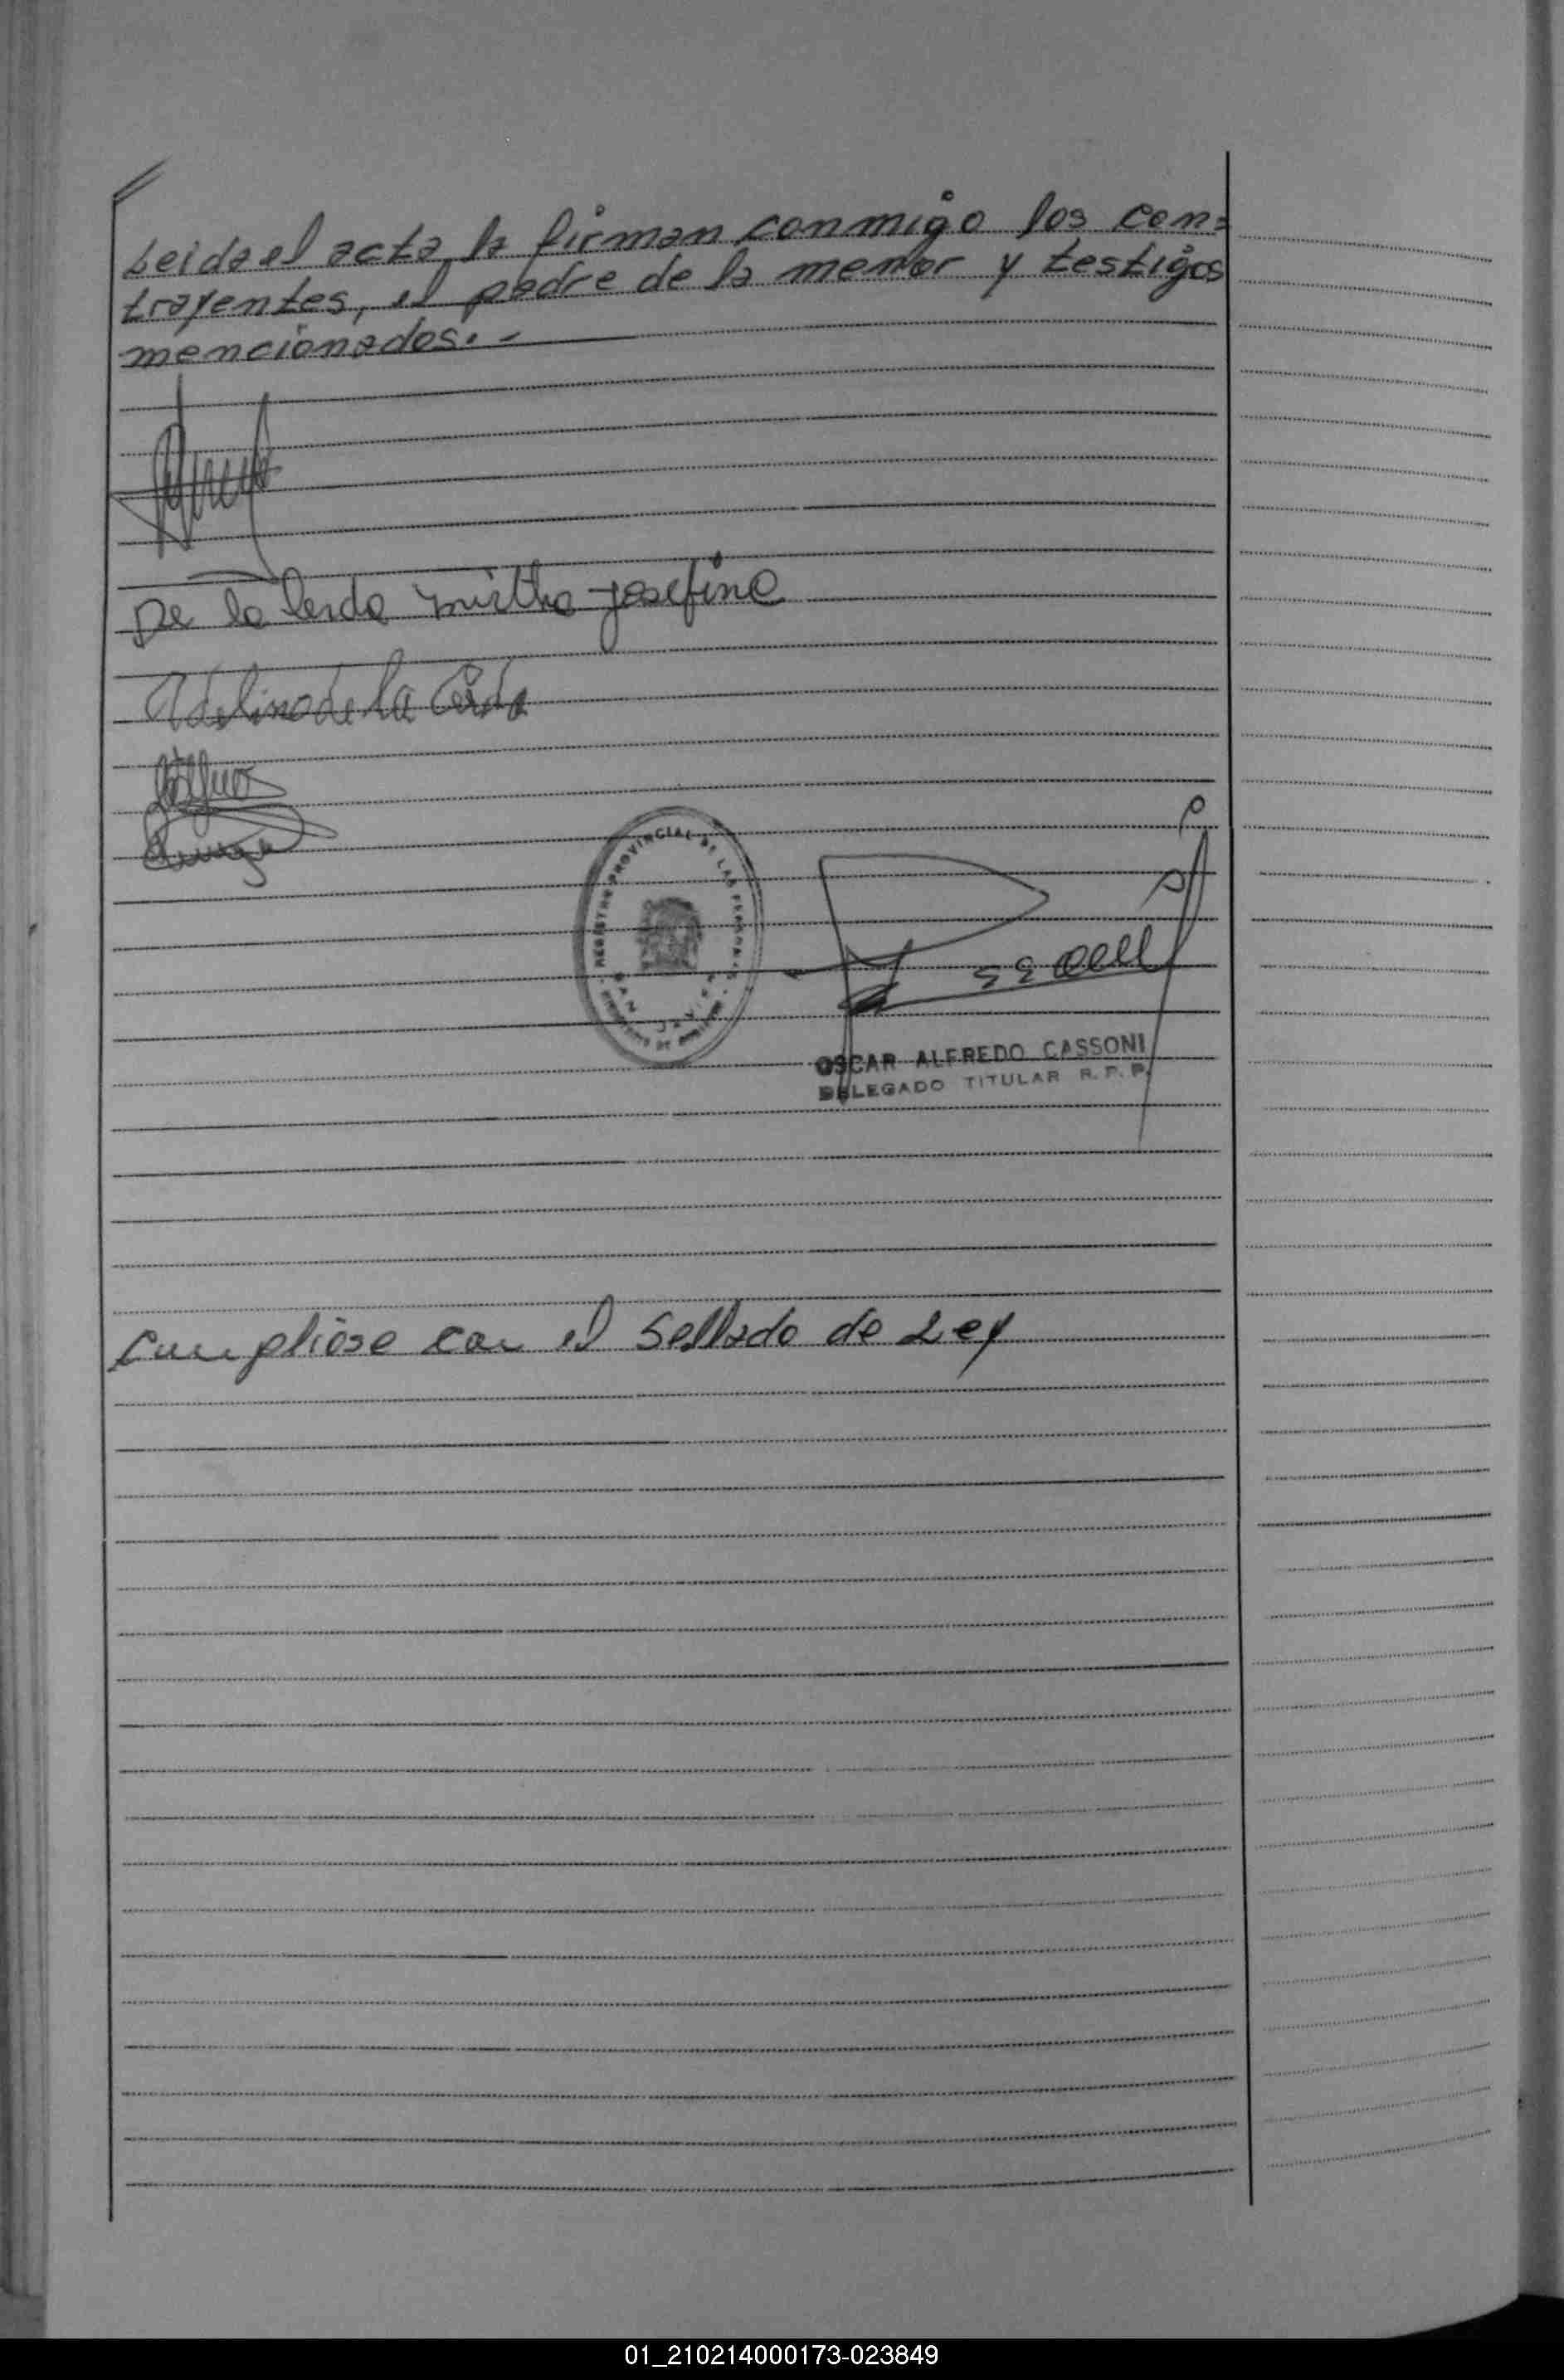 Leida el acta, la firman conmigo los con=
trayentes, el padre de la menor y testigos
mencionados.-
De la Cerda mirtha josefina
Adelino de la Cerda
REGISTRO PROVINCIAL DE LAS PERSONAS
SAN JAVIER
OSCAR ALFREDO CASSONI
DELEGADO TITULAR R. P. P.
Cumpliose con el Sellado de Ley
01_210214000173-023849